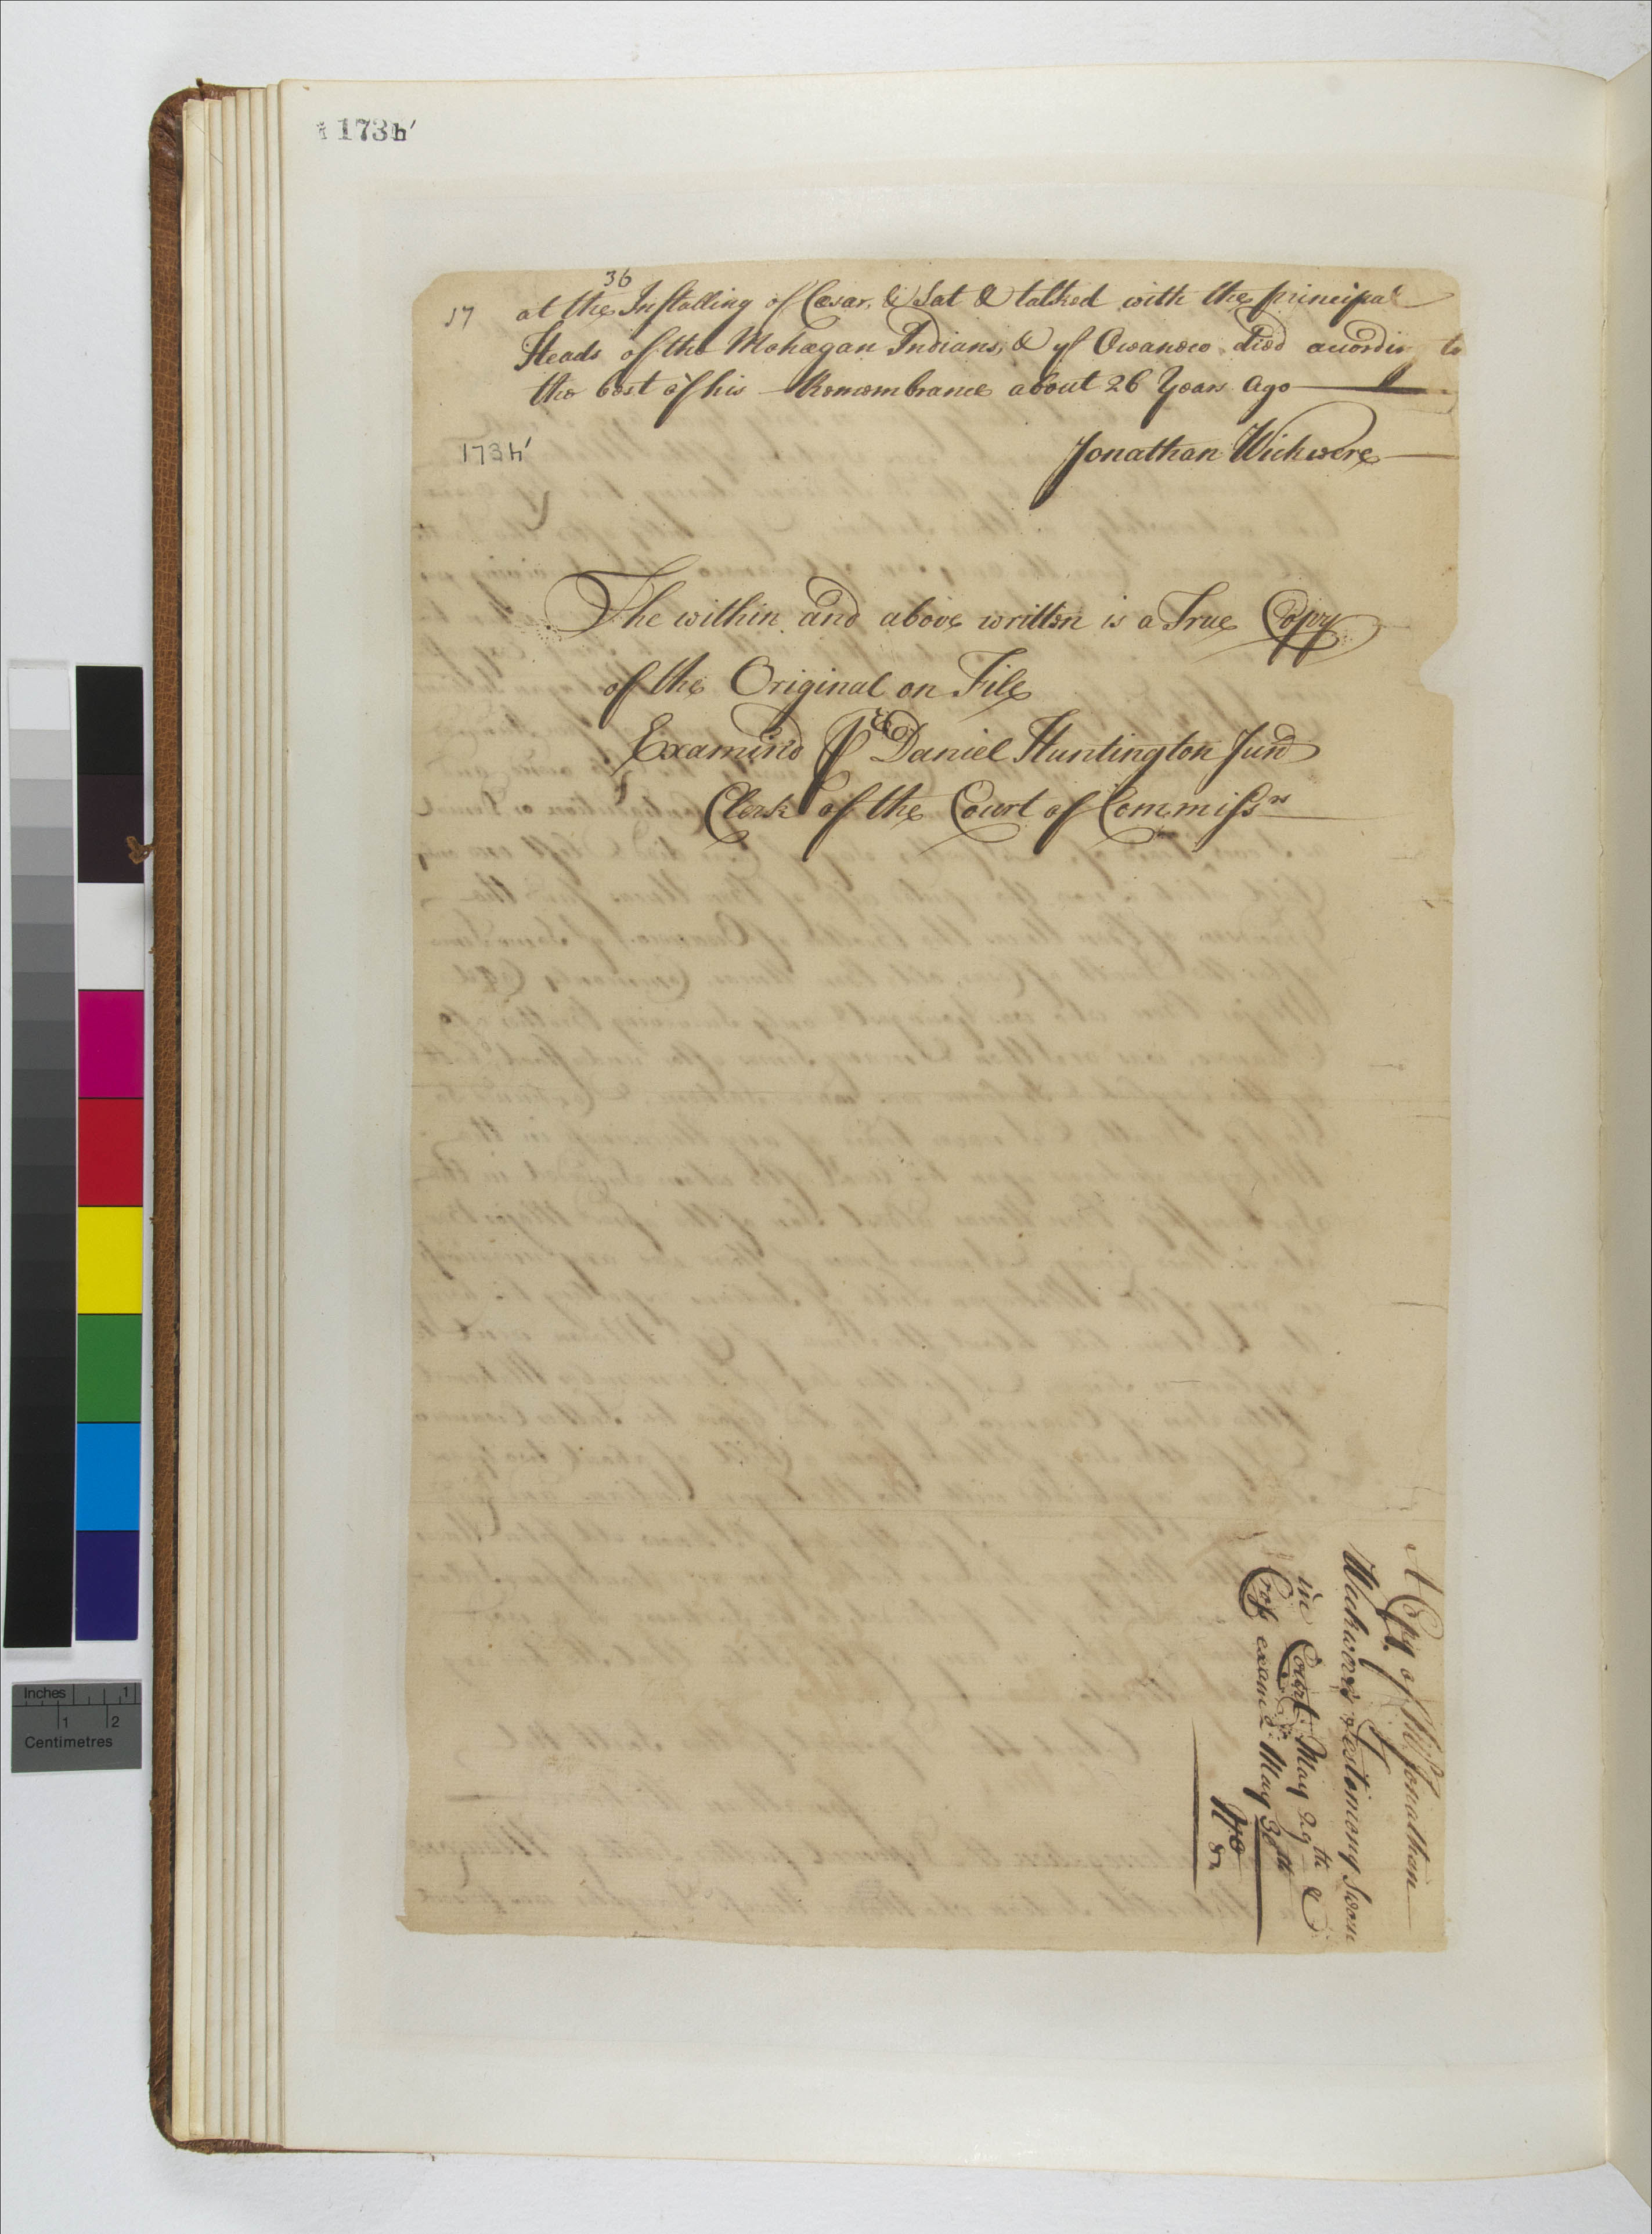 173h'
36
17 at the Installing of Cæsar, & Sat & talked with the principal
Heads of the Mohegan Indians, & yt Owaneco died accordin to
the best of his Remembrance about 26 Years ago
173h'
Jonathan Wickwere
The within and above written is a True Copy
of the Original on File
Examind P Daniel Huntington Junr
Clerk of the Court of Commissrs
A Copy of Mr Jonathan
Wickwere's Testimony Sworn
in Court May 29th &
Cross examd. May 30th
No 8
Inches 1
1 2
Centimetres